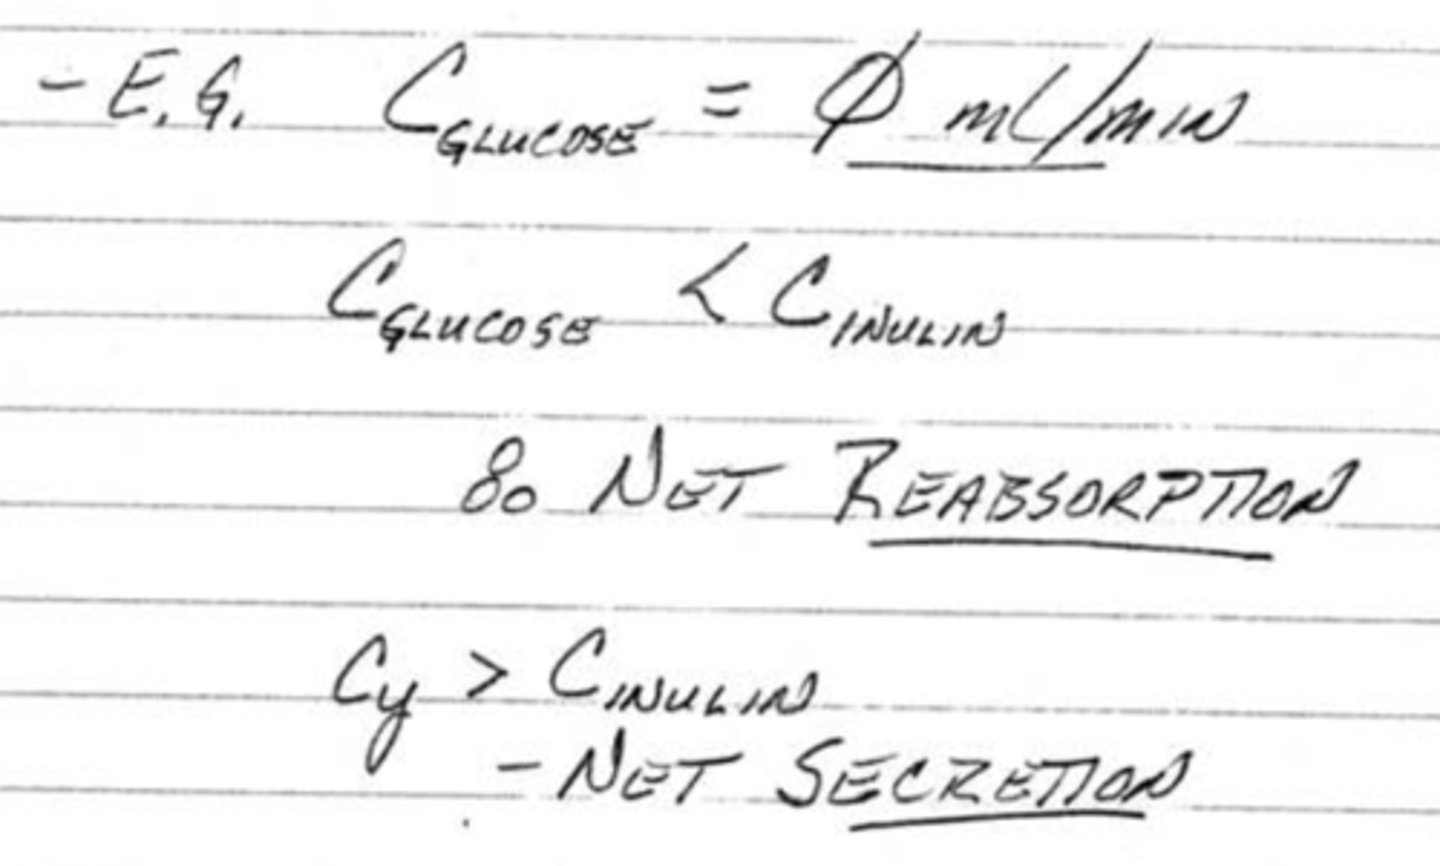 - E.G. C GLUCOSE = Ø mL/min
C GLUCOSE < C INULIN
So NET REABSORPTION
Cy > C INULIN
- NET SECRETION